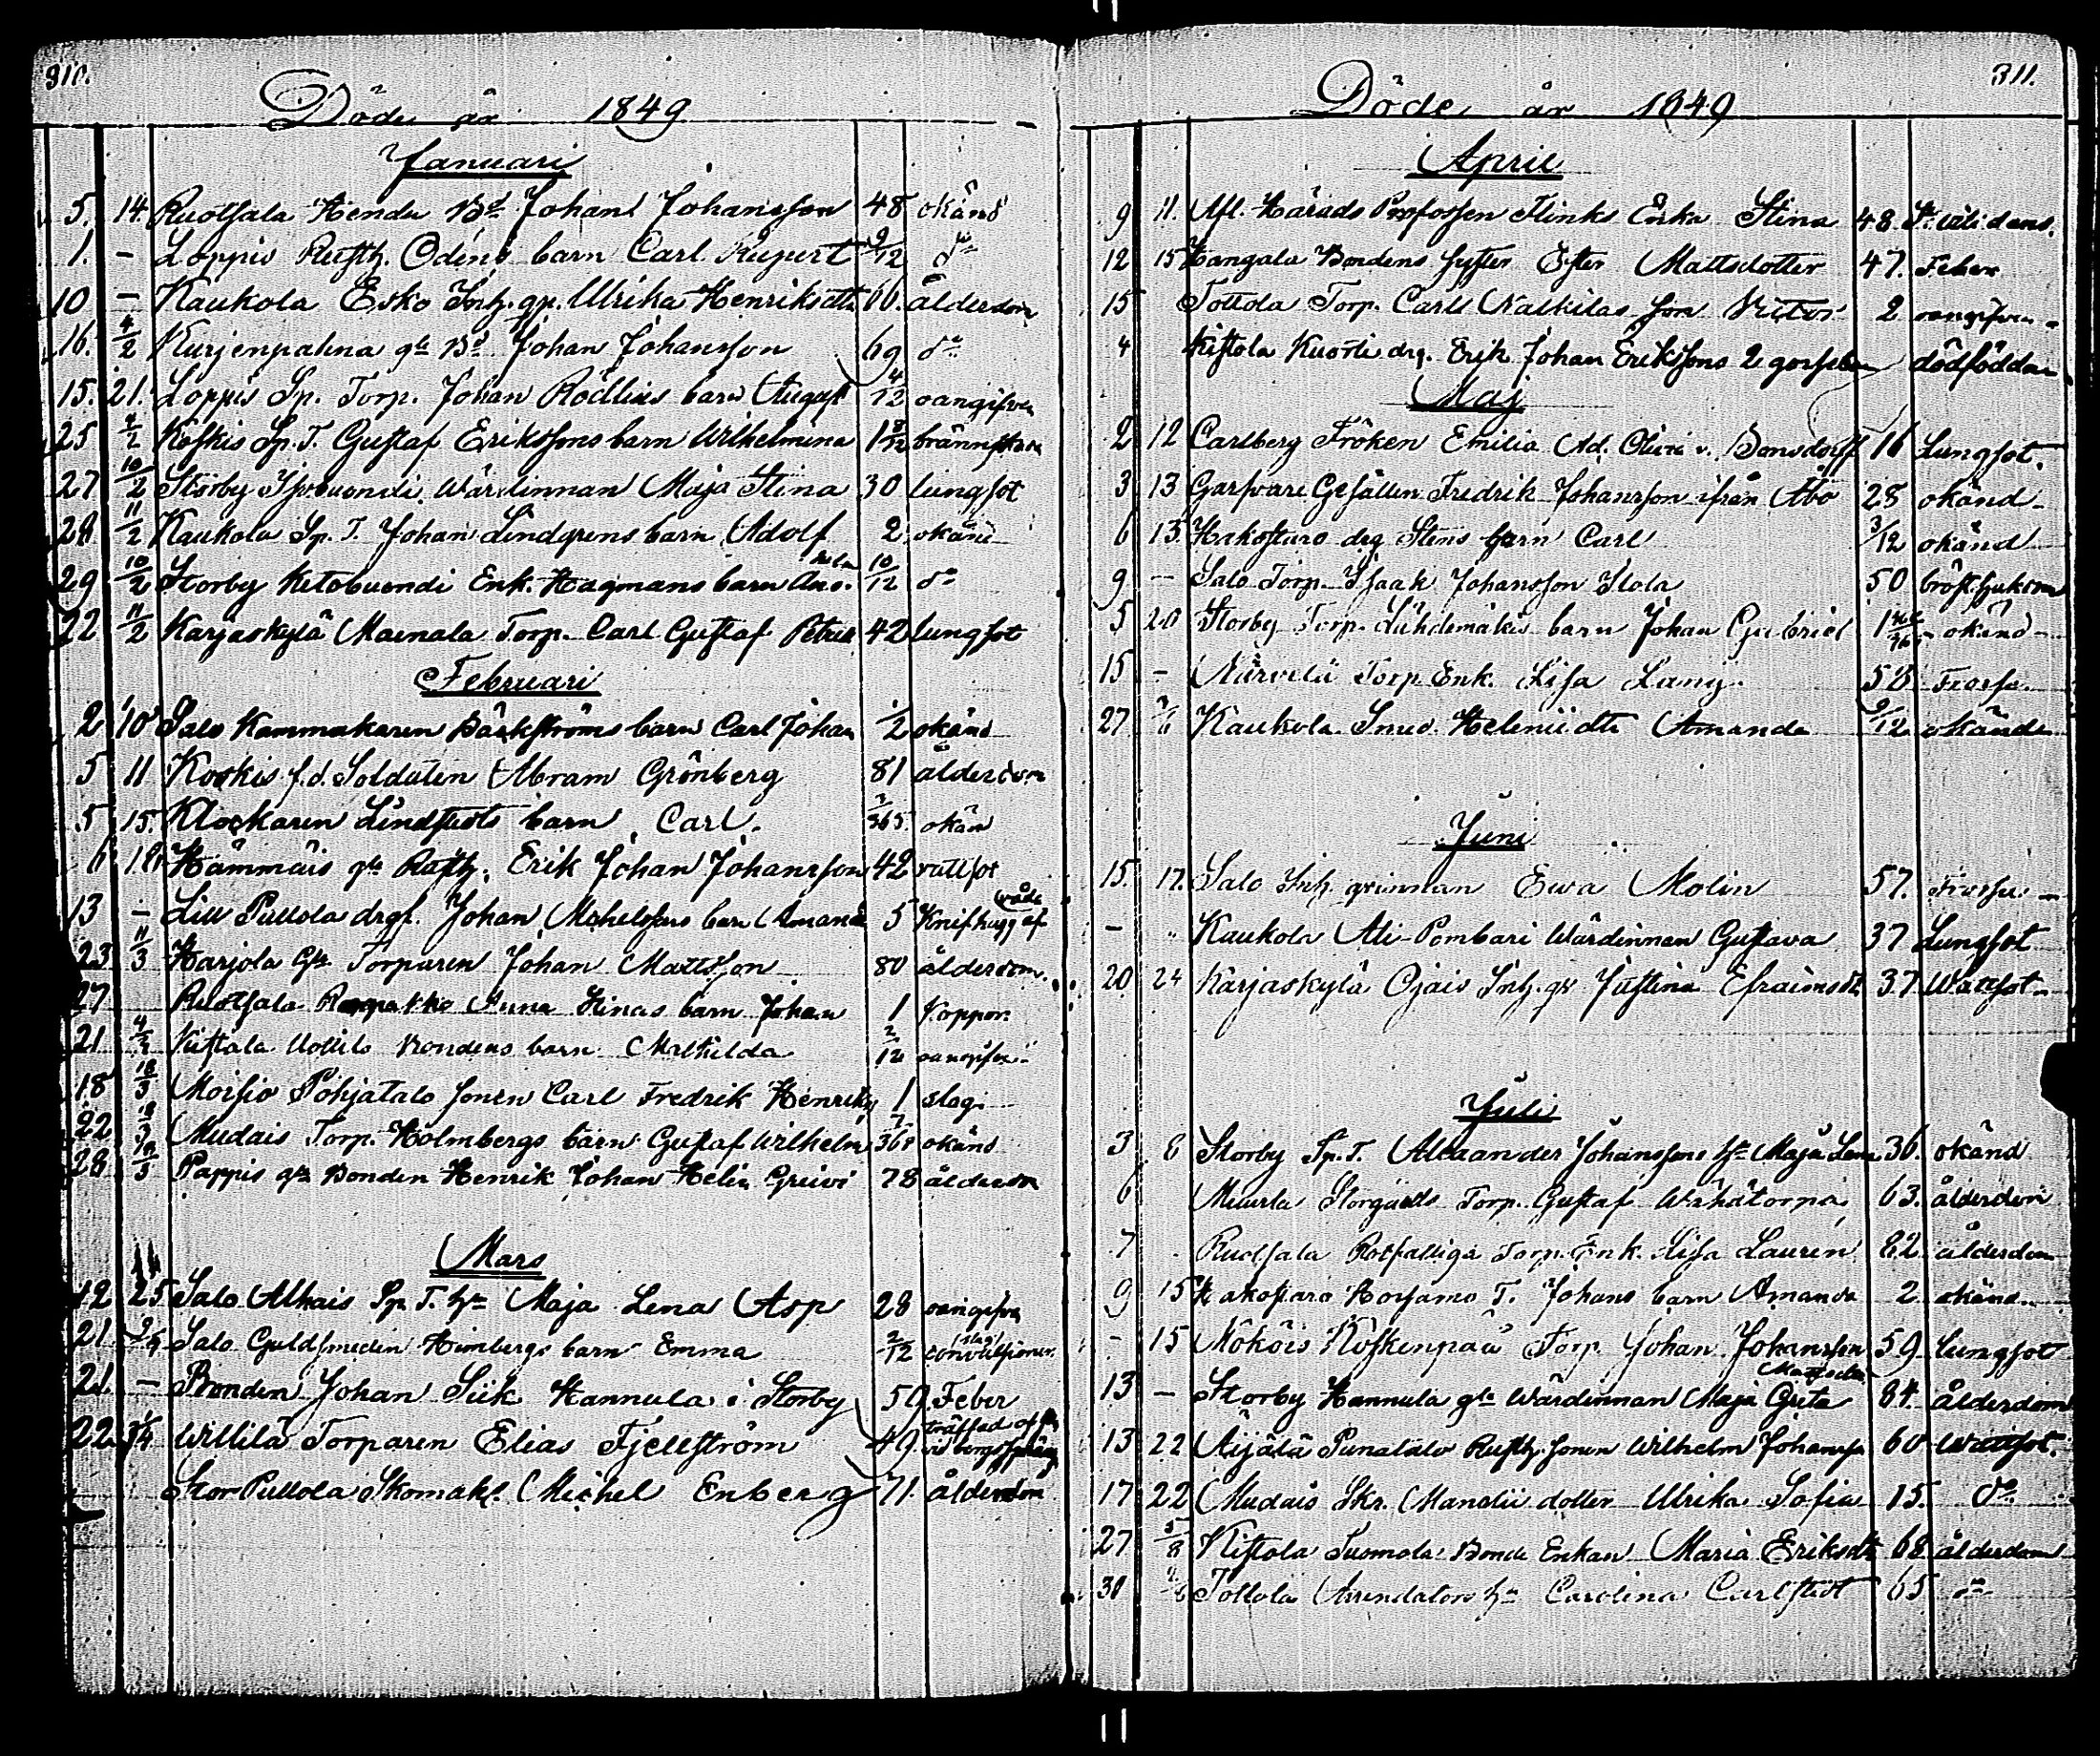 310.
Döde år 1849
Januari
5. 14 Ruotsala Hendu Bd. Johan Johansson 48 okänd
1. - Loppis Rusth. Odens barn Carl Rupert 9/12 do
10 - Kaukola Esko Inh. gg. Ulrika Henriksdtr 66. ålderdom
16. 4/2 Kurjenpahna gle Bd. Johan Johansson 69 do
15. 21. Loppis Sp. Torp. Johan Rödlius barn August 4/12 oangifven
25 2/2 Koskis Sp. T. Gustaf Erikssons barn Wilhelmina brännskada
27 10/2 Storby Wärdinnan Maja Stina 30 lungsot
28 11/2 Kaukola Sp. T. Johan Lindgrens barn Adolf 2 okänd
29 10/2 Storby Ketobuondi Enk. Hagmans barn 10/12 do
22 11/2 Karjaskylä Mainala Torp. Carl Gustaf 42 lungsot
Februari
2 10 Salo Kammakaren Bäckströms barn Carl Johan 1/2 okänd
5 11 Koskis f.d. Soldaten Abram Grönberg 81 ålderdom
5 15. Klockaren Lindstedts barn Carl. 2/365. okän
6 18 Hämmäis gle Rusth. Erik Johan Johansson 42 vattsot
13 - Lill Pullola drgs. Johan Michelssons barn Amanda 5 Knifhugg af våda
23 11/3 Karjola Gle Torparen Johan Mattsson 80 ålderdom.
27 Ruotsala Anna Stinas barn Johan 1 Koppor.
21 4/3 Kistala Uotila Bondens barn Mathilda 2/12 oangifven
18 18/3 Moisio Pohjatalo sonen Carl Fredrik Henriks 1 slag
22 18/3 Mudais Torp. Holmbergs barn Gustaf Wilhelm 7/365 okänd
28 18/3 Pappis gle Bonden Henrik Johan Helin Greivi 78 ålderdom
Mars
12 25 Salo Alhais Sp. T. hu Maja Lena Asp 28 oangifven
21. 9/4 Salo Guldsmeden Himbergs barn Emma 2/12 (slag) convulsioner.
21. - Bonden Johan Siik Hannula i Storby 50. Feber
22. Willilä Torparen Elias Fjellström 49 träffad af vid bergssprängn
Stor Pullola Skomak. Michel Enberg 71. ålderdom
311.
Döde år 1849
April
9 11. Afl. Härads Profossen Flinks Enka Stina 48.
12 15 Hangala Bondens syster Ester Mattsdotter 47. Feber
15 Tottola Torp. Carl Nalkilas son Victor 2 oangifven
4 Kistola Kuotti drg. Erik Johan Erikssons 2 gossebarn dödfödda
Maj
2 12 Carlberg Fröken Emilia Ad. Olivia v. Bonsdorff 16 Lungsot.
3 13 Garfvare Gesällen Fredrik Johansson ifrån Åbo 28 okänd
6 13. Hakostaro drg Stens barn Carl 3/12 okänd
9 - Salo Torp. Isaak Johansson Isola 50 bröstsjukdom
5 20 Storby Torp. Lähdemäkis barn Johan Gabriel okänd
15 - Närvelä Torp. Enk. Lisa Lang. 58 Frossa.
27 Kaukola Smed. Helenii dtr Amanda 9/12 okänd
Juni
15. 17. Salo Inh. qvinnan Ewa Molin 57. Frossa
- " Kaukola Ali-Pombari Wärdinnan Gustava 37 Lungsot
20 24 Karjaskylä Ojais Inh. qv Justina Efraimsdtr 37 Wattsot
Juli
3 8 Storby Sp. T. Alexander Johanssons hu Maja Lena 36. okänd
6 Muurla Storgårds Torp. Gustaf Wähätorpa 63. ålderdom
7 Ruotsala Torp. Enk. Lisa Laurén 82 ålderdom
9 15 Hakostaro Horjamo T. Johans barn Amanda 2 okänd
- 15 Mököis Koskenpää Torp. Johan Johansson 59. lungsot
13 - Storby Hannula gle Wärdinnan Maja Greta Mattsdtr. 84. ålderdom
13 22 Äijälä Punatalo Rusth. sonen Wilhelm Johansson 60 Wattsot.
17 22 Mudais Skr. Mandii dotter Ulrika Sofia 15. do
27 5/8 Kistola Suomola Bonde Enkan Maria Eriksdtr 68 ålderdom
30 Tottola Arrendators hu Carolina Carlstedt 65 do